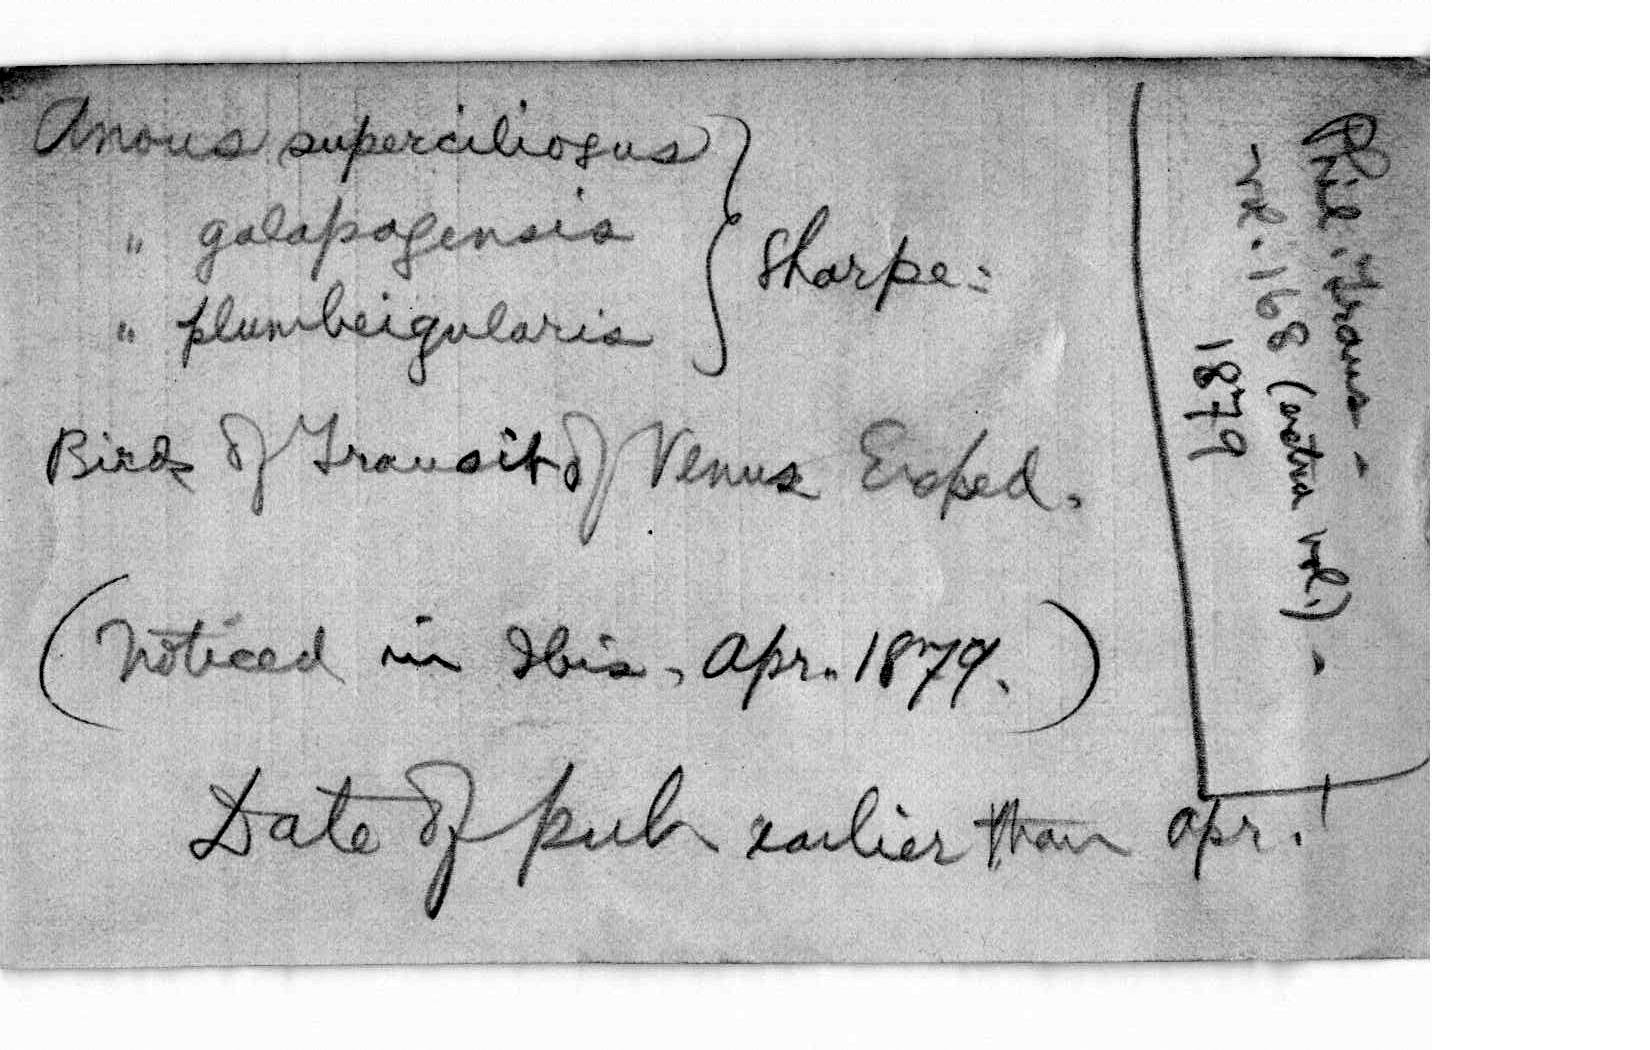 Anous superciliosus
" galapagensis
" plumbeigularis
} Sharpe:
Birds of Transit of Venus Exped.
(Noticed in Ibis, Apr. 1879.)
Date of pub earlier than Apr.!
Phil. Trans -
vol. 168 (extra vol.) -
1879